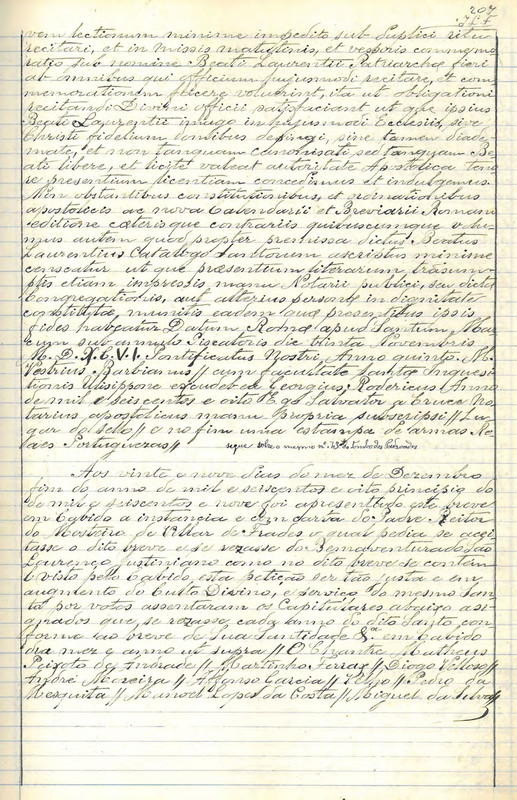 207
vem lectionum minime impedito sub duplici ritu
recitari, et in missis matutinis, et vesperis commemo
ratio sub nomine Beati Laurentii Patriarchæ fieri
ab omnibus qui officium hujusmodi recitare, et com
memorationem facere voluerint, ita ut obligationi
recitandi Divini Officii satisfaciant ut que ipsius
Beati Laurentii imago in hujusmodi Ecclesiis, sive
Christi fidelium domibus depingi, sine tamen diade
mate, et non tanquam canonisati sed tanquam Be
ati libere, et licite valeat autoritate Apostolica teno
re presentium licentiam concedimus et indulgemus.
Non obstantibus constitutionibus, et ordinationibus
apostolicis ac nova Calendarii et Breviarii Romani
editione cæterisque contrariis quibuscumque volu
mus autem quod propter premissa dictus Beatus
Laurentius Catalogo Sanctorum ascriptus minime
censeatur ut que præsentium literarum, trasum
ptis etiam impressis, manu Notarii publici, seu dictæ
Congregationis, aut alterius personæ in dignitate
constitutæ, munitis eadem quæ presentibus ipsis
fides habeatur Datum Romæ apud Santum Mar
cum sub annulo Piscatoris die vinta Novembris
M. D. X C. V I. Pontificatus Nostri, Anno quinto. M.
Vestrius Barbianus // cum facultate Santæ Inquesi
tionis Ulisippone excudebat Georgius Rodericus Anno
de mil e seiscentos e oito Ego Salvator a Cruce No
tarius apostolicus manu propria subscripsi // Lu
gar do sello // e no fim uma estampa de armas Re
aes Portuguezas // segue sobre o mesmo
Aos vinte e nove dias do mez de Dezembro
fim do anno de mil e seiscentos e oito principio do
de mil e seiscentos e nove foi apresentado este breve
em Cabido a instancia e do Padre Reitor
do Mosteiro de Villar de Frades o qual pedia se acei
tasse o dito breve e se rezasse do Bemaventurado São
Lourenço Justiniano como no dito breve se contem
E visto pello Cabido, esta petição ser tão justa e em
augmento do Culto Divino, e serviço do mesmo San
to por votos assentaram os Capitulares abaixo asi
gnados que se rezasse cada anno do dito Santo, con
forme ao breve de Sua Santidade &ª. em Cabido
dia mez e anno ut supra // O Chantre Matheus
Peixoto de Andrade // Martinho Ferraz // Diogo Veloso //
André Moreira // Affonso Garcia // Velho // Pedro da
Mesquita // Manoel Lopes da Costa // Miguel da Silva //